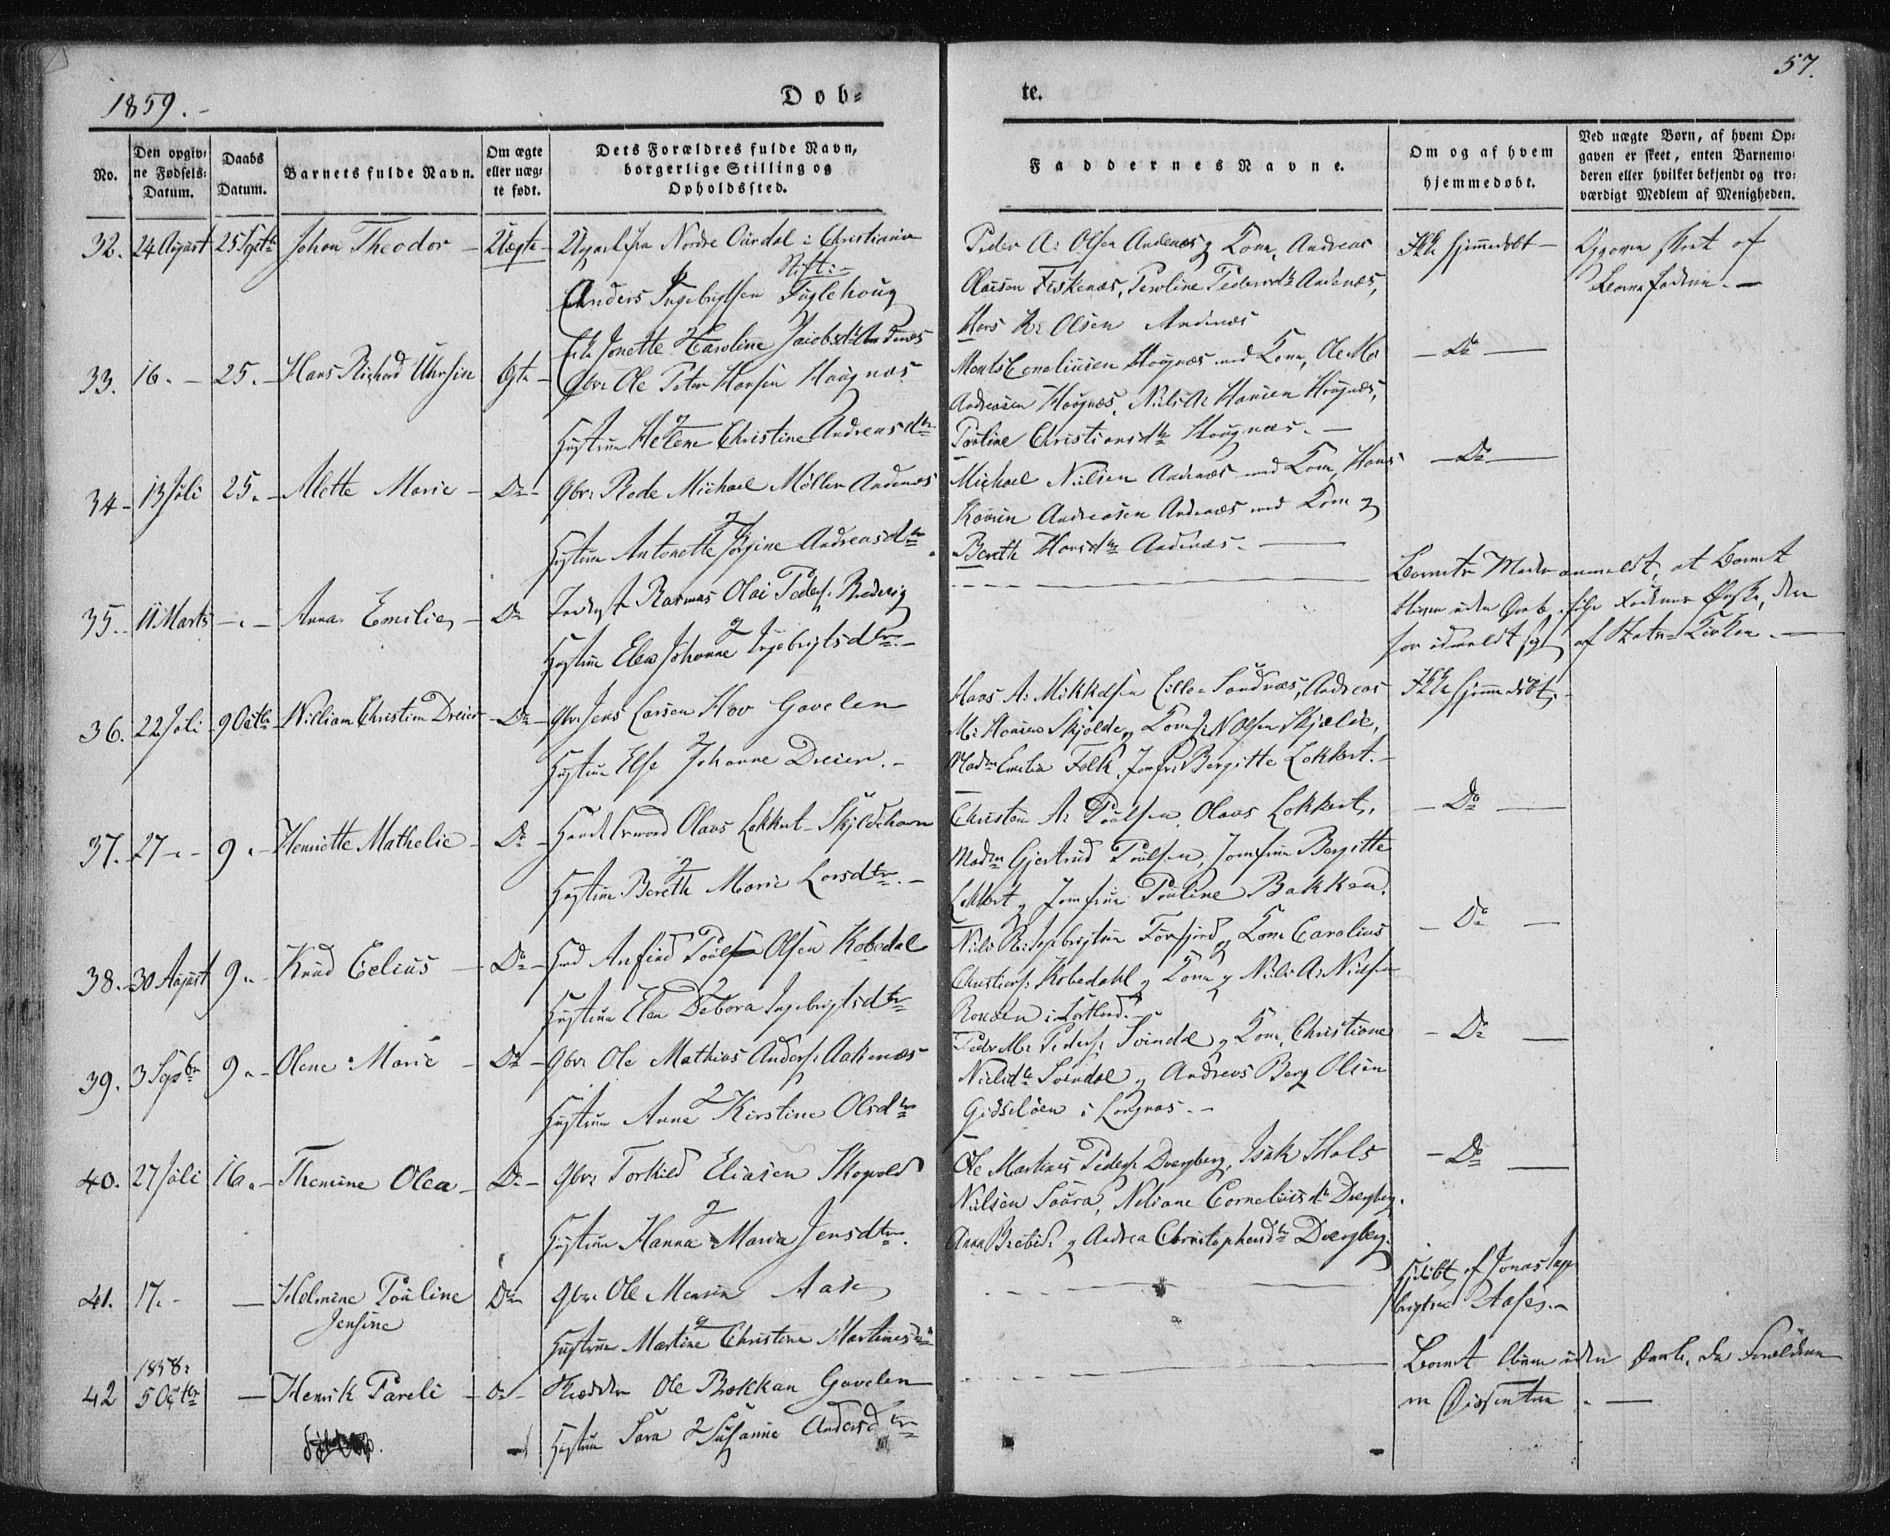 1859.
Døb-
te.
57.
No.
Den opgiv-
ne Fødsels-
Datum.
Daabs
Datum.
Barnets fulde Navn.
Om ægte
eller uæg-
te født.
Dets Forældres fulde Navn,
borgerlige Stilling og
Opholdssted.
Faddernes Navne.
Om og af hvem
hjemmedøbt.
Ved uægte Børn, af hvem Op-
gaven er skeet, enten Barnemo-
deren eller hvilket bekjendt og tro-
værdigt Medlem af Menigheden.
32. 24 August 25 Septbr Johan Theodor Uægte Ungkarl fra Nordre Ourdal i Christiania
Stift:
Anders Ingebrigtsen Fuglehoug
Jonette Caroline Jacobsdtr Andenæs
Peder A: Olsen Andenæs og Kone, Andreas
Olaisen Fiskenæs, Peroline Pedersdtr Andenæs,
Hans Kr: Olsen Andenæs
Ikke hjemmedøbt
Opgaven skeet af
Barnefaderen
33. 16. 25. Hans Richard Uhrsin Ægte Gbr: Ole Peter Hansen Haugnæs
og
Hustrue Helene Christine Andreasdtr
Ments Corneliussen Haugnæs med Kone, Ole M:
Andreasen Haugnæs, Niels A: Hansen Haugnæs,
Pauline Christiansdtr Haugnæs.
Do
34 13 Juli 25. Alette Marie Do Gbr: Rode Michael Møller Andenæs
og
Hustrue Antonette Jørgine Andreasdtr.
Michael Nielsen Andenæs med Kone, Hans
Andreasen Andenæs med Kone og
Bereth Hansdtr Andenæs.
Do
35. 11 Marts Anna Emilie Do Inderst Rasmus Olai Peders. Bredvig
og
Hustrue Elen Johanna Ingebrigtsdtr.
Barnets Moder anmeldt, at Barnet
bliver uden Daab, ifølge Faderens Ønske, der
har udmeldt sig af Stats-Kirken.
36. 22 Juli 9 Octbr William Christian Dreier Do Gbr: Jens Larsen Hov Gavelen
og
Hustrue Else Johanne Dreier.
Hans A: Mikkelsen Lille Sandnæs, Andreas
M: Hansen Skjolde og Kone, N Olsen Skjelde,
Madm Emilie Falk, Jomfru Bergitte Lokkert.
Ikke hjemmedøbt.
37. 27 9 Henriette Mathelie Do Handelsmand Olaus Lokkert Skjoldehavn
og
Hustrue Bereth Marie Larsdtr.
Christen A: Poulsen, Olaus Lokkert,
Madm Gjertrud Poulsen, Jomfrue Bergitte
Lokkert og Jomfrue Pauline Bakken.
Do
38. 30 August 9. Knud Eelius Do Anfind Olsen Kobedal
og
Hustrue Elen Debora Ingebrigtsdtr
Niels R: Ingebrigtsen Forfjord og Kone Carolius
Christians: Kobedahl og Kone og Niels A: Nielsen
i Sortland.
Do
39. 3 Sepbr 9. Olene Marie Do Gbr: Ole Mathias Anders: Aakenæs
og
Hustrue Anne Kirstine Olsdtr
Peder M: Peders: Svindal og Kone, Christiane
Nielsdtr Svindal og Andreas Berg Olsen
i Langnæs.
Do
40. 27 Juli 16. Themine Olea Do Gbr: Torkild Eliasen Skogvold
og
Hustrue Hanna Maria Jensdtr.
Ole Martinus Peders. Dverberg, Isak Hals
Nielsen Saura, Neliane Corneliusdtr Dverberg,
Anna og Andrea Christophersdtr Dverberg.
Do
41. 17. Holmine Pouline
Jensine Do Gbr: Ole Aase
og
Hustrue Martine Christine Martinusdtr
Hjdøbt af Jonas Inge
brigtsen Aase.
42 1858: 5 Octbr Henrik Pareli Do Skrædder Ole Bakkan Gavelen
og
Hustrue Sara Susanne Andersdtr
Barnet bliver uden Daab, da Forældrene
er Dissentere.